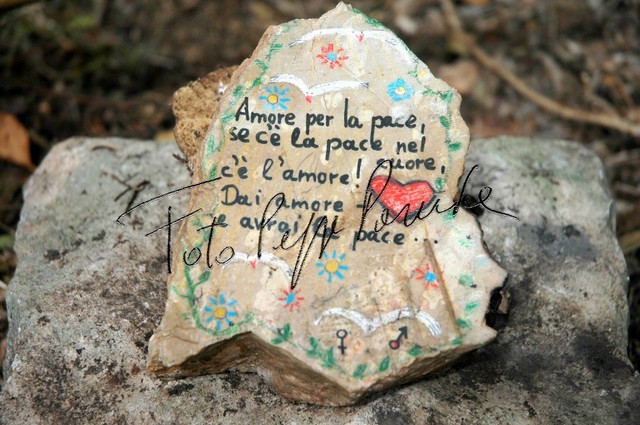 Amore per la pace,
se c'è la pace nel
cuore,
c'è l'amore!
Dai amore -
e avrai la pace...
Foto